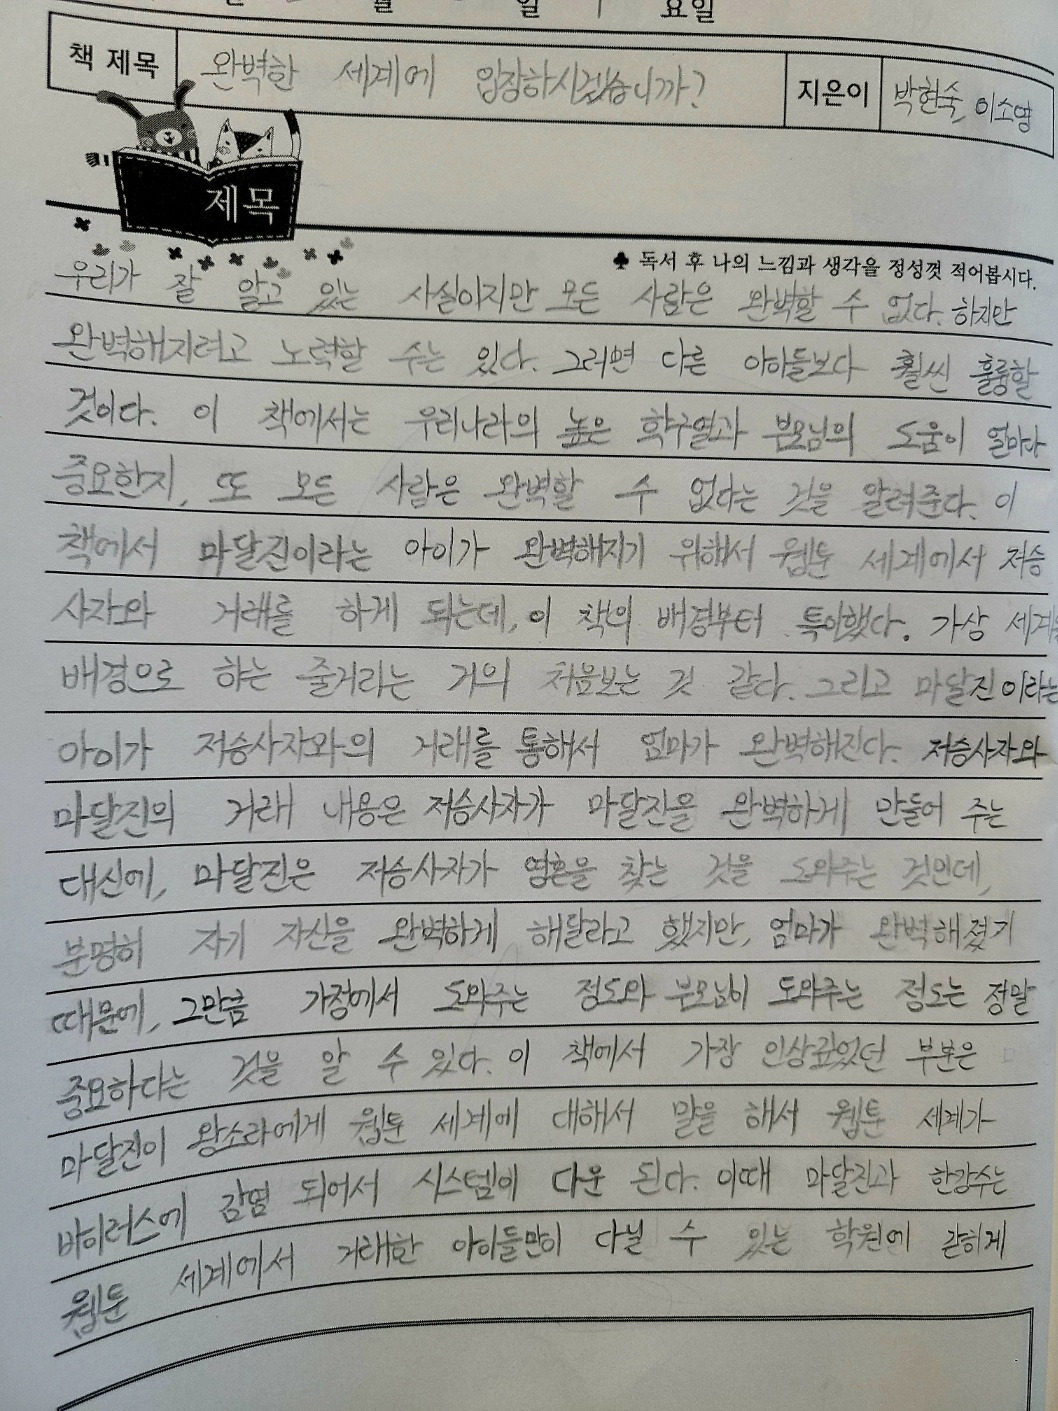 월 일 요일
책 제목 완벽한 세계에 입장하시겠습니까? 지은이 박현숙, 이소영
제목
♣ 독서 후 나의 느낌과 생각을 정성껏 적어봅시다.
우리가 잘 알고 있는 사실이지만 모든 사람은 완벽할 수 없다. 하지만
완벽해지려고 노력할 수는 있다. 그러면 다른 아이들보다 훨씬 훌륭할
것이다. 이 책에서는 우리나라의 높은 학구열과 부모님의 도움이 얼마나
중요한지, 또 모든 사람은 완벽할 수 없다는 것을 알려준다. 이
책에서 마달진이라는 아이가 완벽해지기 위해서 웹툰 세계에서 저승
사자와 거래를 하게 되는데, 이 책의 배경부터 특이했다. 가상 세계를
배경으로 하는 줄거리는 거의 처음보는 것 같다. 그리고 마달진이라는
아이가 저승사자와의 거래를 통해서 엄마가 완벽해진다. 저승사자와
마달진의 거래 내용은 저승사자가 마달진을 완벽하게 만들어 주는
대신에, 마달진은 저승사자가 영혼을 찾는 것을 도와주는 것인데,
분명히 자기 자신을 완벽하게 해달라고 했지만, 엄마가 완벽해졌기
때문에, 그만큼 가정에서 도와주는 정도와 부모님이 도와주는 정도는 정말
중요하다는 것을 알 수 있다. 이 책에서 가장 인상깊었던 부분은
마달진이 왕소라에게 웹툰 세계에 대해서 말을 해서 웹툰 세계가
바이러스에 감염 되어서 시스템이 다운 된다. 이때 마달진과 한강수는
웹툰 세계에서 거래한 아이들만이 다닐 수 있는 학원에 갇히게